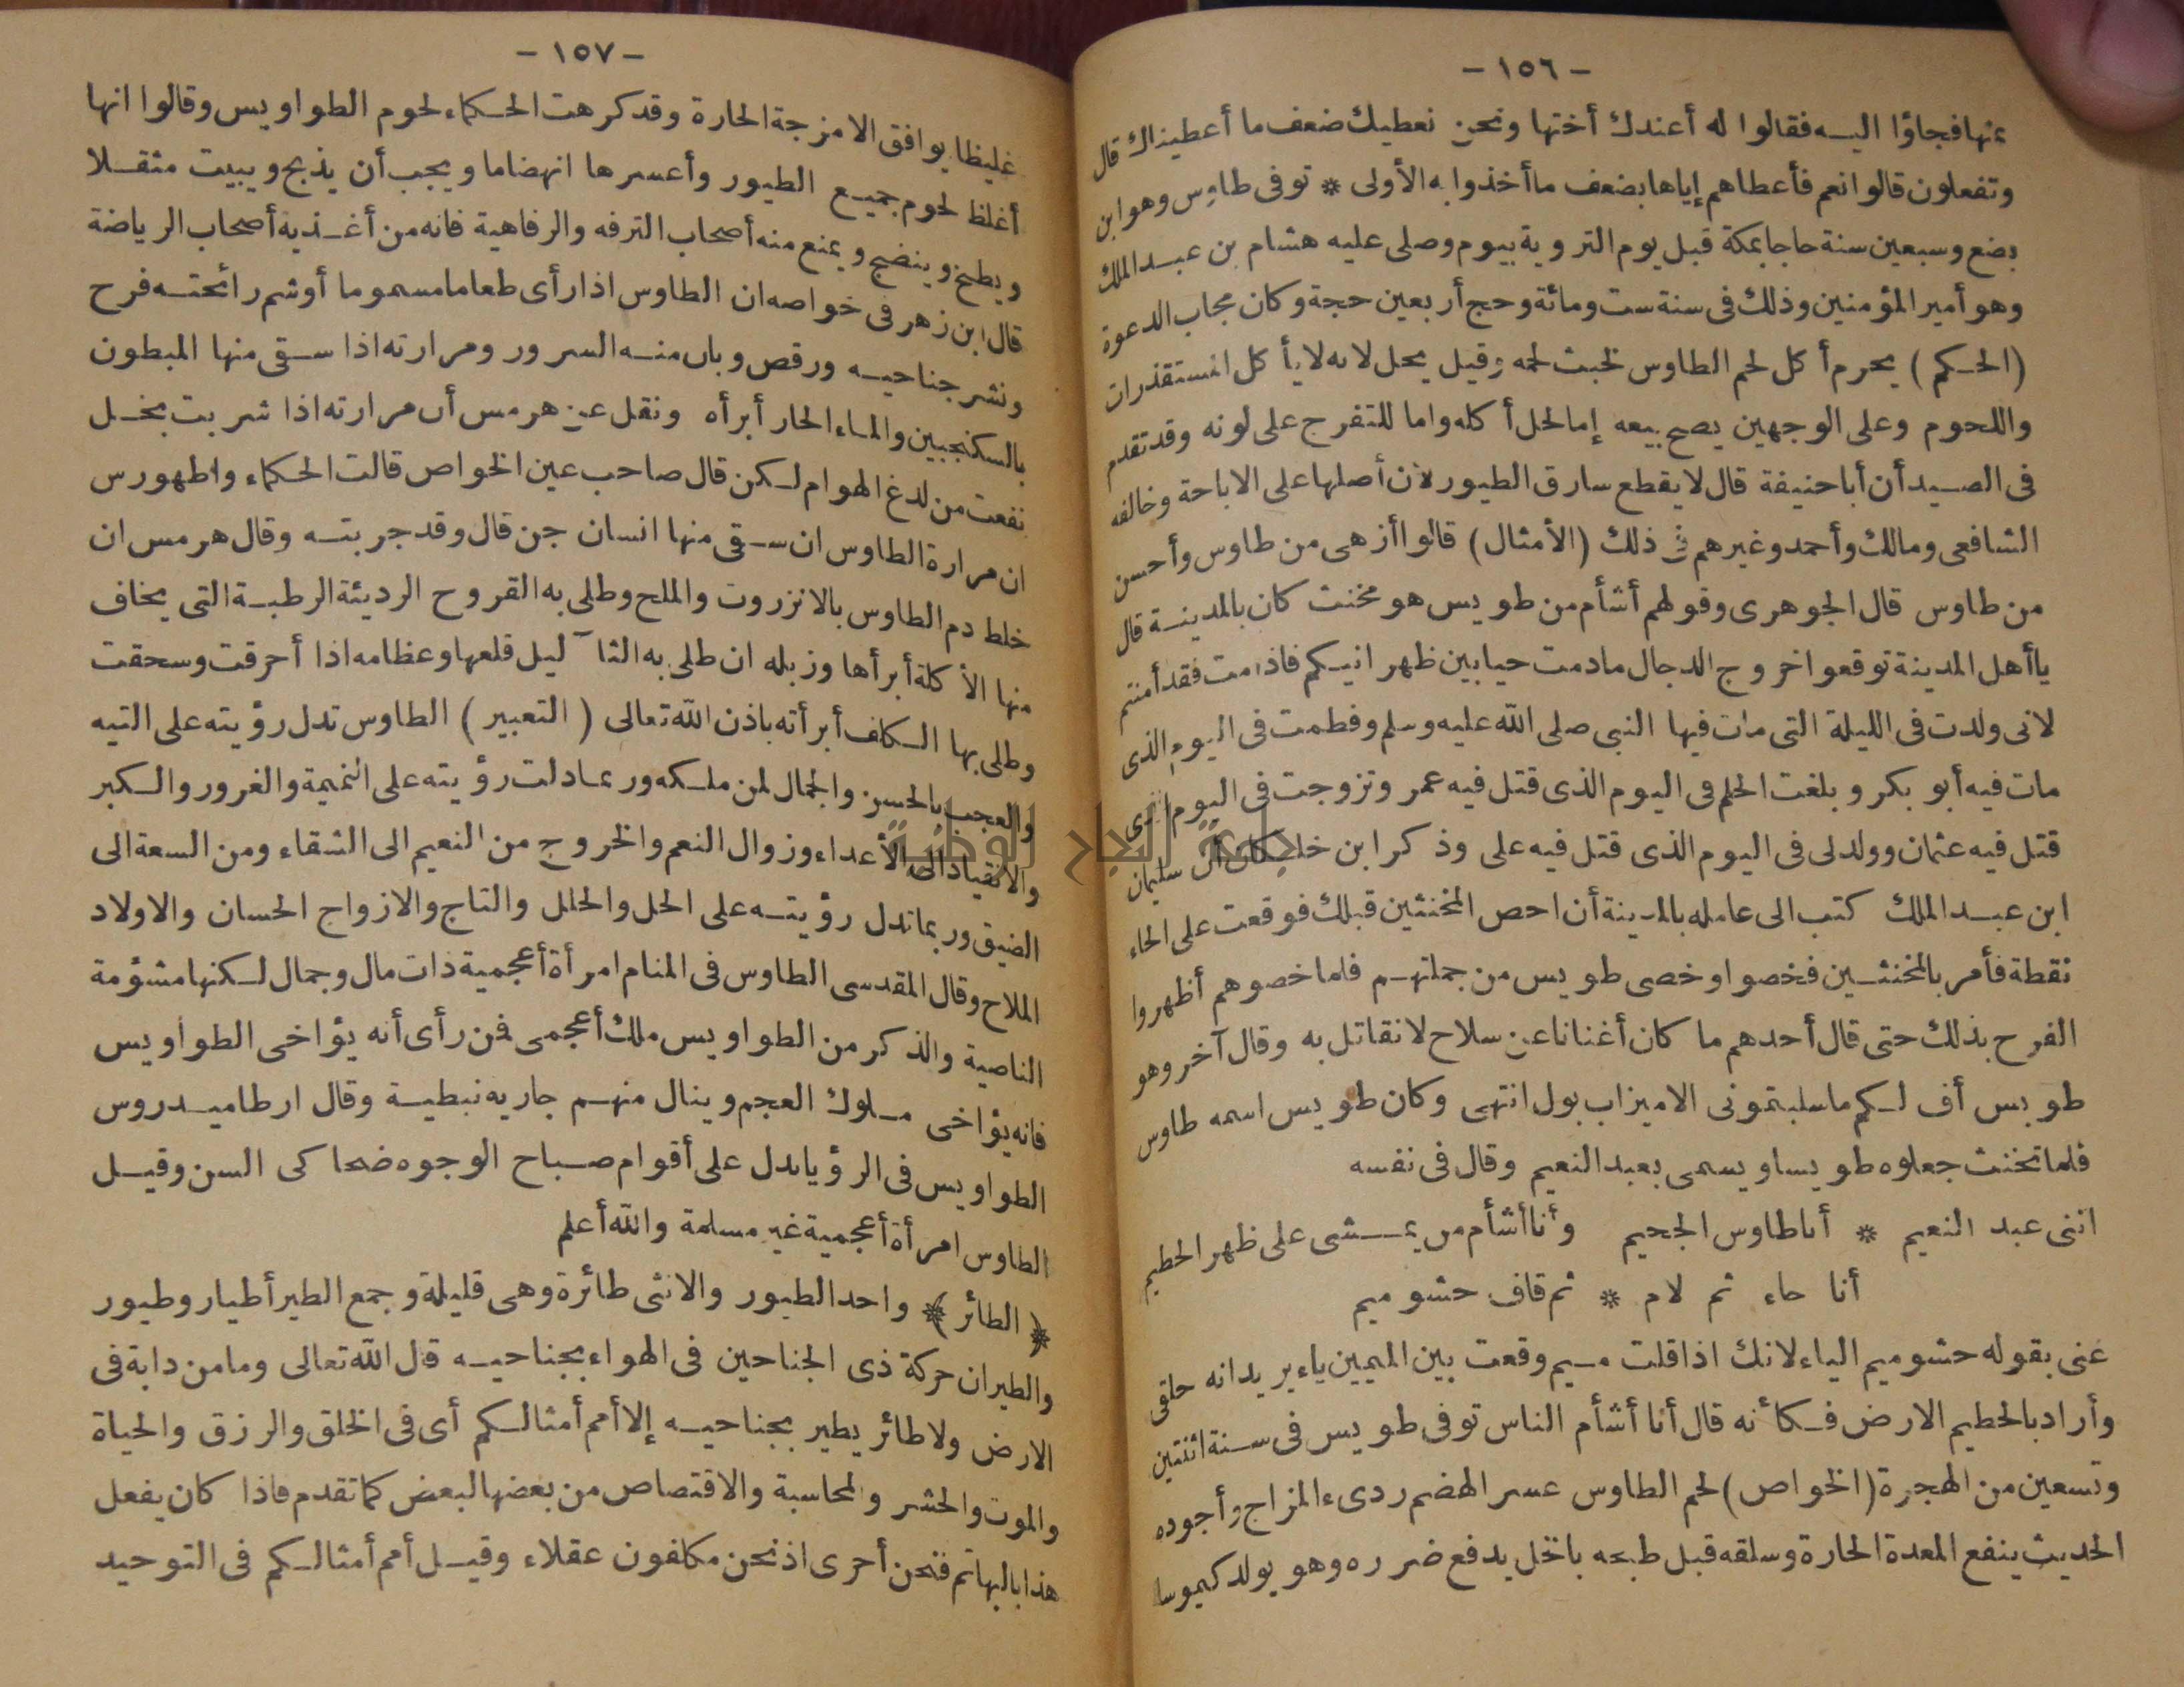 - ١٥٦ -
عنها فجاؤا اليه فقالوا له أعندك أختها ونحن نعطيك ضعف ما أعطيناك قال
وتفعلون قالوا نعم فأعطاهم إياها بضعف ما أخذوا به الأولى * توفى طاوس وهو ابن
بضع وسبعين سنة حاجا بمكة قبل يوم التروية بيوم وصلى عليه هشام بن عبد الملك
وهو أمير المؤمنين وذلك فى سنة ست ومائة وحج أربعين حجة وكان مجاب الدعوة
(الحكم) يحرم أكل لحم الطاوس لخبث لحمه وقيل يحل لانه لا يأكل المستقذرات
واللحوم وعلى الوجهين يصح بيعه إما لحل أكله واما للتفرج على لونه وقد تقدم
فى الصيد أن أبا حنيفة قال لا يقطع سارق الطيور لأن أصلها على الاباحة وخالفه
الشافعى ومالك وأحمد وغيرهم فى ذلك (الأمثال) قالوا أزهى من طاوس وأحسن
من طاوس قال الجوهرى وقولهم أشأم من طويس هو مخنث كان بالمدينة قال
يا أهل المدينة توقعوا خروج الدجال مادمت حيا بين ظهرانيكم فاذا مت فقد أمنتم
لانى ولدت فى الليلة التى مات فيها النبى صلى الله عليه وسلم وفطمت فى اليوم الذى
مات فيه أبو بكر وبلغت الحلم فى اليوم الذى قتل فيه عمر وتزوجت فى اليوم الذى
قتل فيه عثمان وولد لى فى اليوم الذى قتل فيه على وذكر ابن خلكان أن سليمان
ابن عبد الملك كتب الى عامله بالمدينة أن احص المخنثين قبلك فوقعت على الحاء
نقطة فأمر بالمخنثين فخصوا وخصى طويس من جملتهم فلما خصوهم أظهروا
الفرح بذلك حتى قال أحدهم ما كان أغنانا عن سلاح لا نقاتل به وقال آخر وهو
طويس أف لكم ما سلبتمونى الا ميزاب بول انتهى وكان طويس اسمه طاوس
فلما تخنث جعلوه طويسا ويسمى بعبد النعيم وقال فى نفسه
اننى عبد النعيم * أنا طاوس الجحيم وأنا أشأم من يمشى على ظهر الحطيم
أنا حاء ثم لام * ثم قاف حشو ميم
عنى بقوله حشو ميم الياء لانك اذا قلت ميم وقعت بين الميمين ياء يريد انه حلقى
وأراد بالحطيم الارض فكأنه قال أنا أشأم الناس توفى طويس فى سنة اثنتين
وتسعين من الهجرة (الخواص) لحم الطاوس عسر الهضم ردىء المزاج وأجوده
الحديث ينفع المعدة الحارة وسلقه قبل طبخه بالخل يدفع ضرره وهو يولد كيموسا
- ١٥٧ -
غليظا يوافق الامزجة الحارة وقد كرهت الحكماء لحوم الطواويس وقالوا انها
أغلظ لحوم جميع الطيور وأعسرها انهضاما ويجب أن يذبح ويبيت مثقلا
ويطبخ وينضج ويمنع منه أصحاب الترفه والرفاهية فانه من أغذية أصحاب الرياضة
قال ابن زهر فى خواصه ان الطاوس اذا رأى طعاما مسموما أو شم رائحته فرح
ونشر جناحيه ورقص وبان منه السرور ومرارته اذا سقى منها المبطون
بالسكنجبين والماء الحار أبرأه ونقل عن هرمس أن مرارته اذا شربت بخل
نفعت من لدغ الهوام لكن قال صاحب عين الخواص قالت الحكماء واطهورس
ان مرارة الطاوس ان سقى منها انسان جن قال وقد جربته وقال هرمس ان
خلط دم الطاوس بالانزروت والملح وطلى به القروح الرديئة الرطبة التى يخاف
منها الأكلة أبرأها وزبله ان طلى به الثآليل قلعها وعظامه اذا أحرقت وسحقت
وطلى بها الكلف أبرأته باذن الله تعالى (التعبير) الطاوس تدل رؤيته على التيه
والعجب بالحسن والجمال لمن ملكه وربما دلت رؤيته على النميمة والغرور والكبر
والانقياد الى الأعداء وزوال النعم والخروج من النعيم الى الشقاء ومن السعة الى
الضيق وربما تدل رؤيته على الحل والحلل والتاج والازواج الحسان والاولاد
الملاح وقال المقدسى الطاوس فى المنام امرأة أعجمية ذات مال وجمال لكنها مشؤمة
الناصية والذكر من الطواويس ملك أعجمى فمن رأى أنه يؤاخى الطواويس
فانه يؤاخى ملوك العجم وينال منهم جارية نبطية وقال ارطاميدروس
الطواويس فى الرؤيا تدل على أقوام صباح الوجوه ضحاكى السن وقيل
الطاوس امرأة أعجمية غير مسلمة والله أعلم
﴿ الطائر ﴾ واحد الطيور والانثى طائرة وهى قليلة وجمع الطير أطيار وطيور
والطيران حركة ذى الجناحين فى الهواء بجناحيه قال الله تعالى وما من دابة فى
الارض ولا طائر يطير بجناحيه إلا أمم أمثالكم أى فى الخلق والرزق والحياة
والموت والحشر والمحاسبة والاقتصاص من بعضها لبعض كما تقدم فاذا كان يفعل
هذا بالبهائم فنحن أحرى اذ نحن مكلفون عقلاء وقيل أمم أمثالكم فى التوحيد